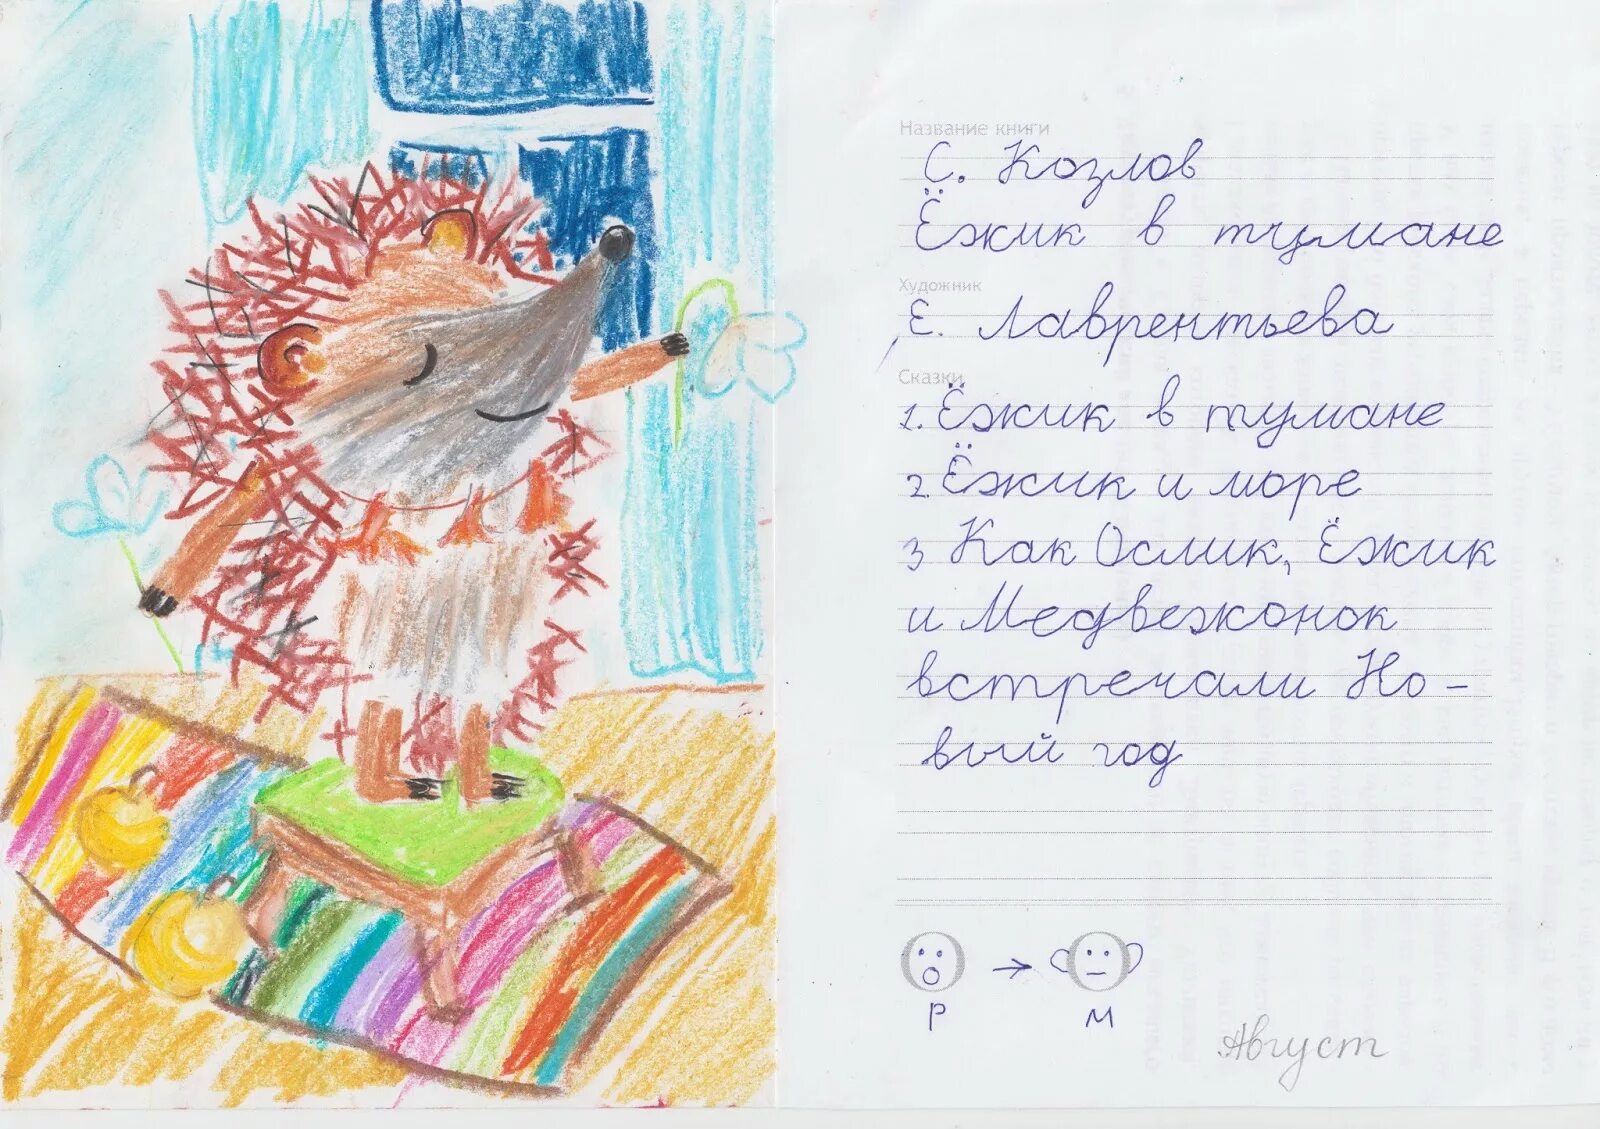 Название книги
С. Козлов
Ёжик в тумане
Художник
Е. Лаврентьева
Сказки
1. Ёжик в тумане
2. Ёжик и море
3 Как Ослик, Ёжик
и Медвежонок
встречали Но-
вый год
Р → М
Август